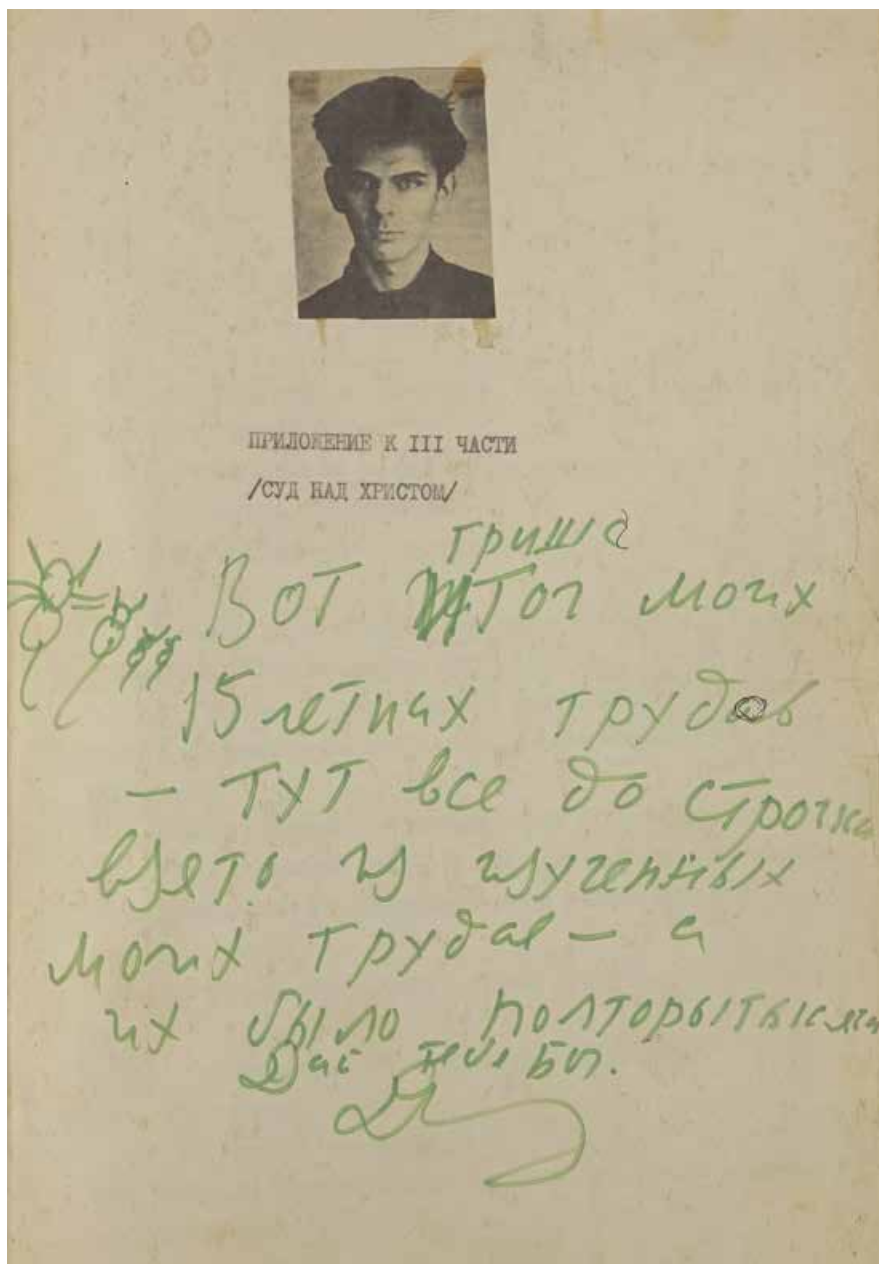 ПРИЛОЖЕНИЕ К III ЧАСТИ
/СУД НАД ХРИСТОМ/
Гриша
Вот итог моих
15 летних трудов
— тут все до строчки
взято из изученных
моих трудав — а
их было полторытысячи
Дай тебе Бог.